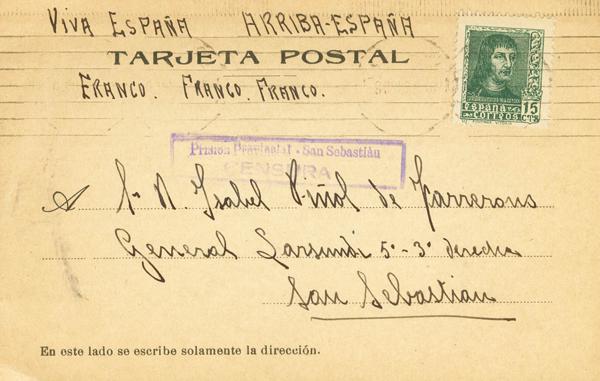 VIVA ESPAÑA ARRIBA-ESPAÑA
TARJETA POSTAL
FRANCO. FRANCO. FRANCO.
15
ESPAÑA CTS
CORREOS
Prisión Provincial - San Sebastián
CENSURA
A Sra D. Isabel Viñol de Farrerons
General Larsundi 5º-3º derecha
San Sebastian
En este lado se escribe solamente la dirección.